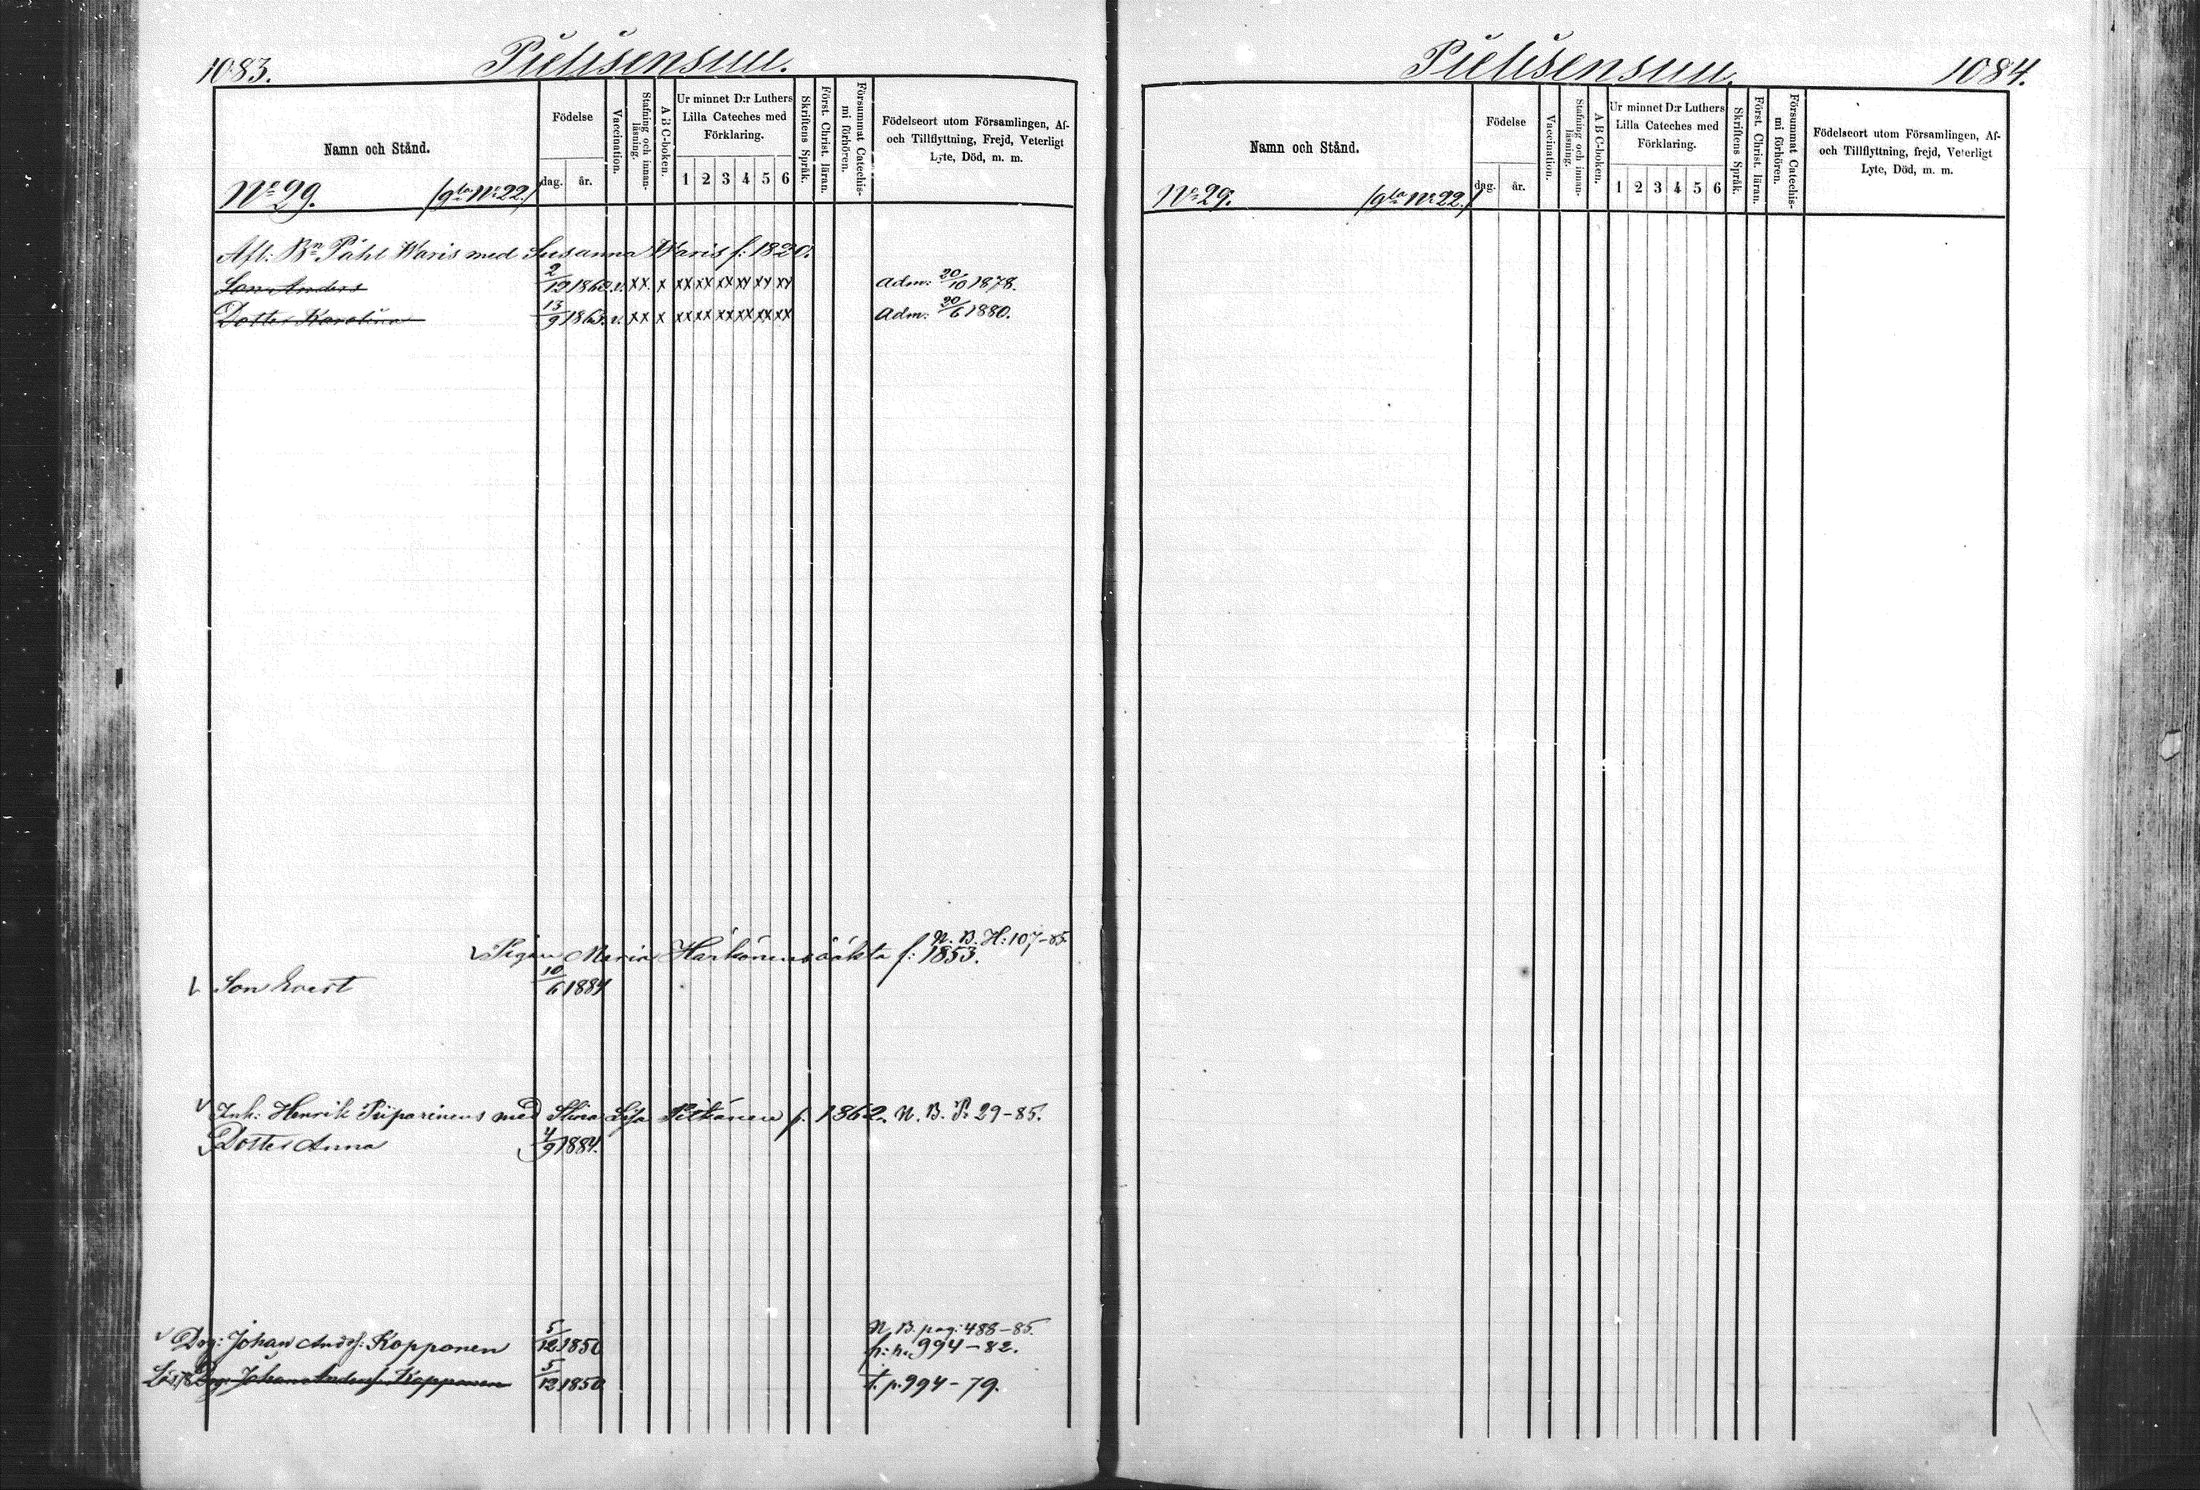 1083. Pielisensuu.
Namn och Stånd.
Födelse
dag. år.
Vaccination.
Stafning och innan-läsning.
A B C-boken.
Ur minnet D:r Luthers
Lilla Cateches med
Förklaring.
1 2 3 4 5 6
Skriftens Språk.
Först. Christ. läran.
Försummat Catechis-
mi förhören.
Födelseort utom Församlingen, Af-
och Tillflyttning, Frejd, Veterligt
Lyte, Död, m. m.
No 29. (gla No 22.)
Afl: Bn Påhl Waris med Susanna Waris f: 1820.
Son Anders 2/12 1860 v. xx x xx xx xx xx xx xx Adm: 20/10 1878.
Dotter Karolina 13/9 1863 v. xx x xx xx xx xx xx xx Adm: 20/6 1880.
N. B. H: 107-85
Pigan Maria Härkönens oäkta f: 1853.
Son Evert 10/6 1884
Inh: Henrik Piiparinens med Stina Lisa Pitkänen f. 1862. N. B. P. 29-85.
Dotter Anna 4/9 1884.
N. B. pag: 488-85.
Drg: Johan Andsf: Kopponen 5/12 1850 fr: p. 994-82.
Drg: Johan Andersf Kopponen 5/12 1850 t. p. 994-79.
Pielisensuu. 1084.
Namn och Stånd.
Födelse
dag. år.
Vaccination.
Stafning och innan-läsning.
A B C-boken.
Ur minnet D:r Luthers
Lilla Cateches med
Förklaring.
1 2 3 4 5 6
Skriftens Språk.
Först. Christ. läran.
Försummat Catechis-
mi förhören.
Födelseort utom Församlingen, Af-
och Tillflyttning, frejd, Veterligt
Lyte, Död, m. m.
No 29. (gla No 22.)